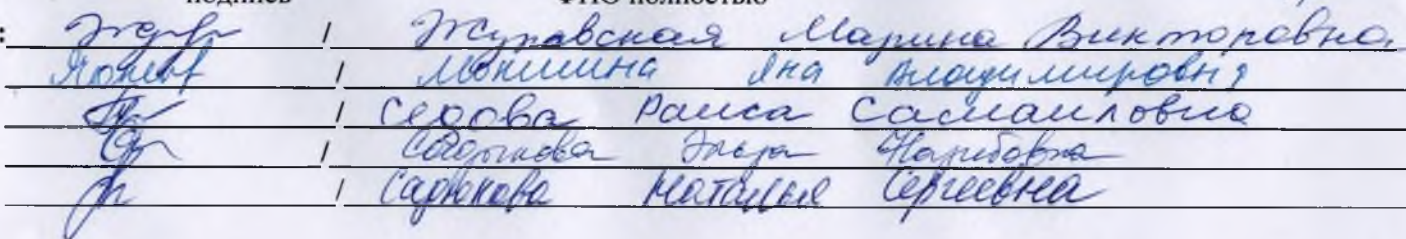 подпись ФИО полностью
: / Журавская Марина Викторовна
/ Моншина Яна Владимировна
/ Седова Раиса Самаиловна
/ Садыкова
/ Садюкова Наталья Сергеевна